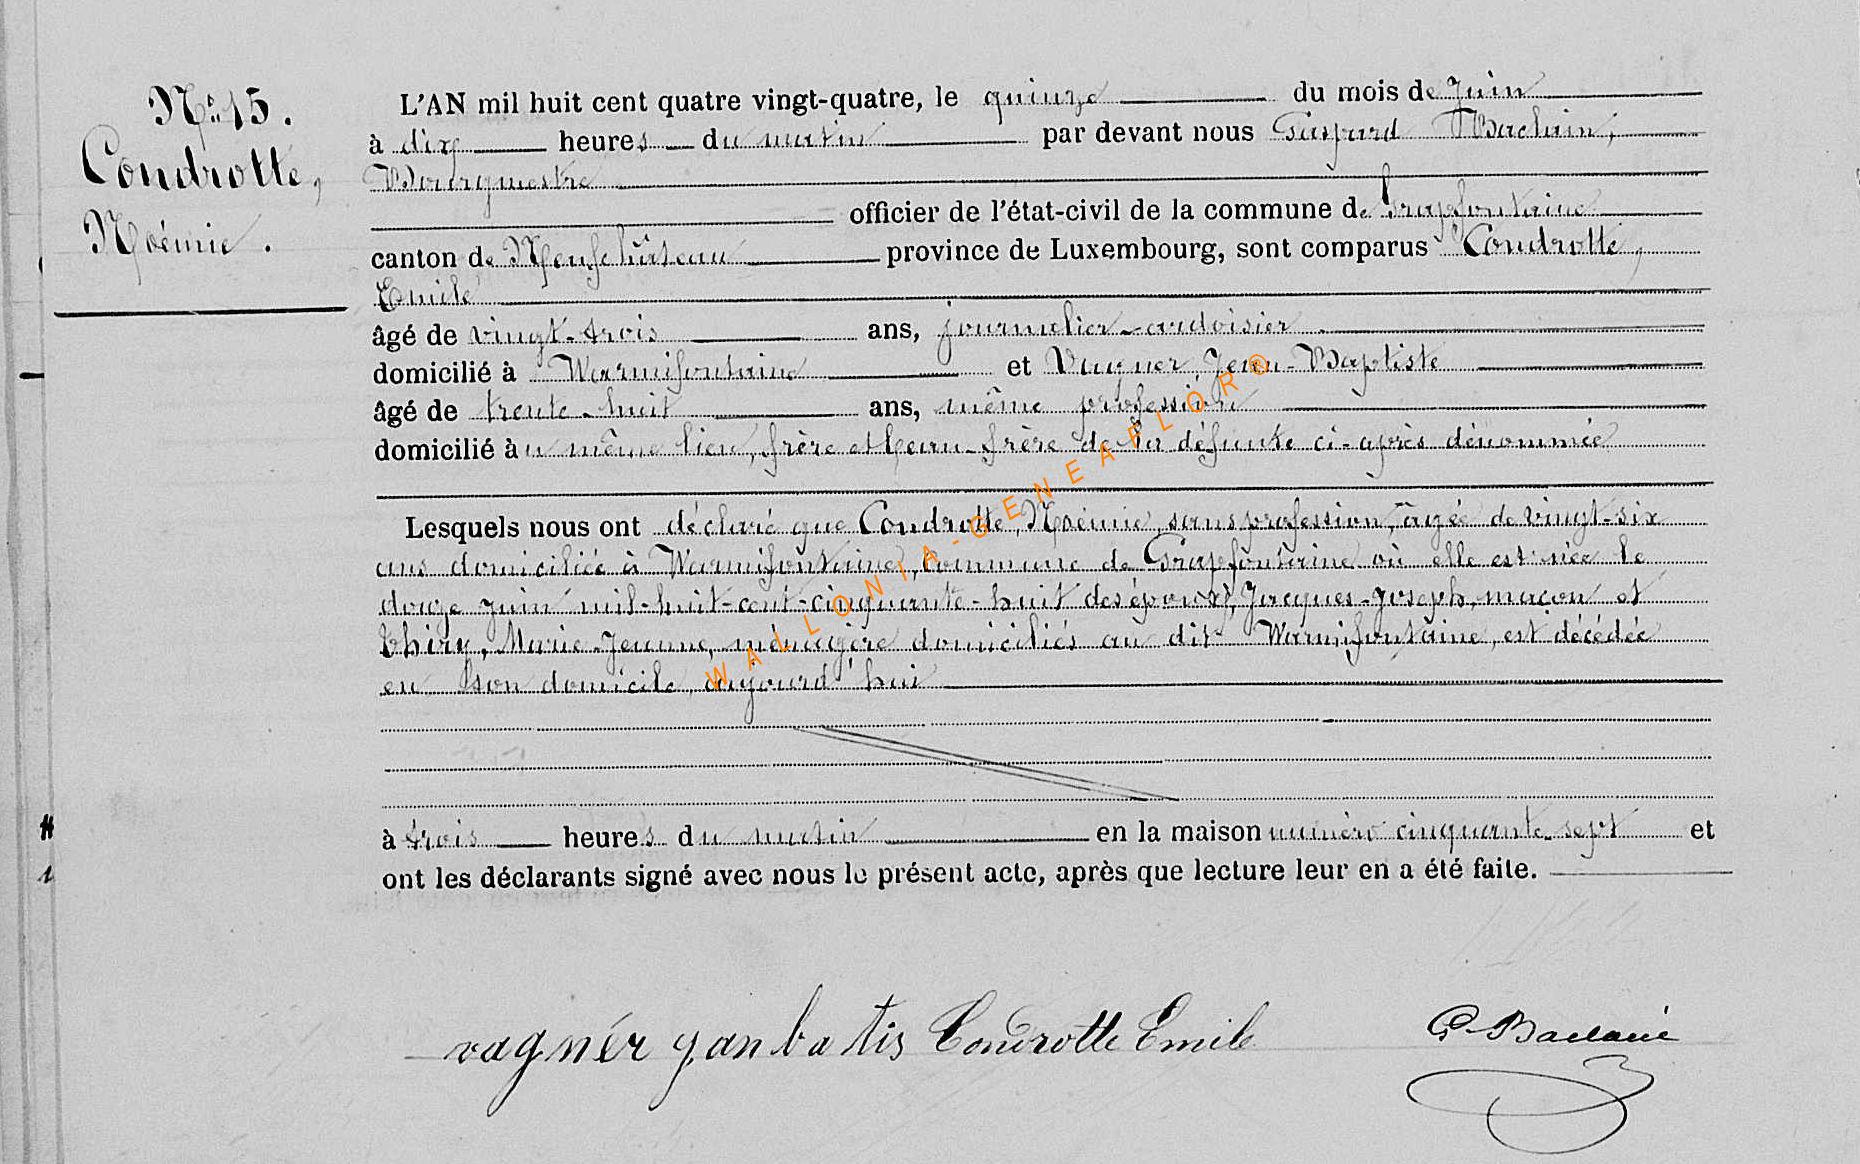 N° 15.
Condrotte,
Noémie.
L'AN mil huit cent quatre vingt-quatre, le quinze du mois de Juin
à dix heures du matin par devant nous Gaspard Baclain,
Bourgmestre
officier de l'état-civil de la commune de Grapfontaine
canton de Neufchâteau province de Luxembourg, sont comparus Condrotte,
Emile
âgé de vingt-trois ans, journalier-ardoisier
domicilié à Warmifontaine et Vagner, Jean-Baptiste
âgé de trente-huit ans, même profession
domicilié au même lieu, frère et beau-frère de la défunte ci-après dénommée
Lesquels nous ont déclaré que Condrotte, Noémie, sans profession, âgée de vingt-six
ans domiciliée à Warmifontaine, commune de Grapfontaine où elle est née le
douze juin mil-huit-cent-cinquante-huit des époux Jacques-Joseph, maçon et
Thiry, Marie-Jeanne, ménagère domiciliés au dit Warmifontaine, est décédée
en son domicile, aujourd'hui
à trois heures du matin en la maison numéro cinquante-sept et
ont les déclarants signé avec nous le présent acte, après que lecture leur en a été faite.
vagnér jan batis Condrotte Emile G Baclain
WALLONIA-GENEAFLOR©